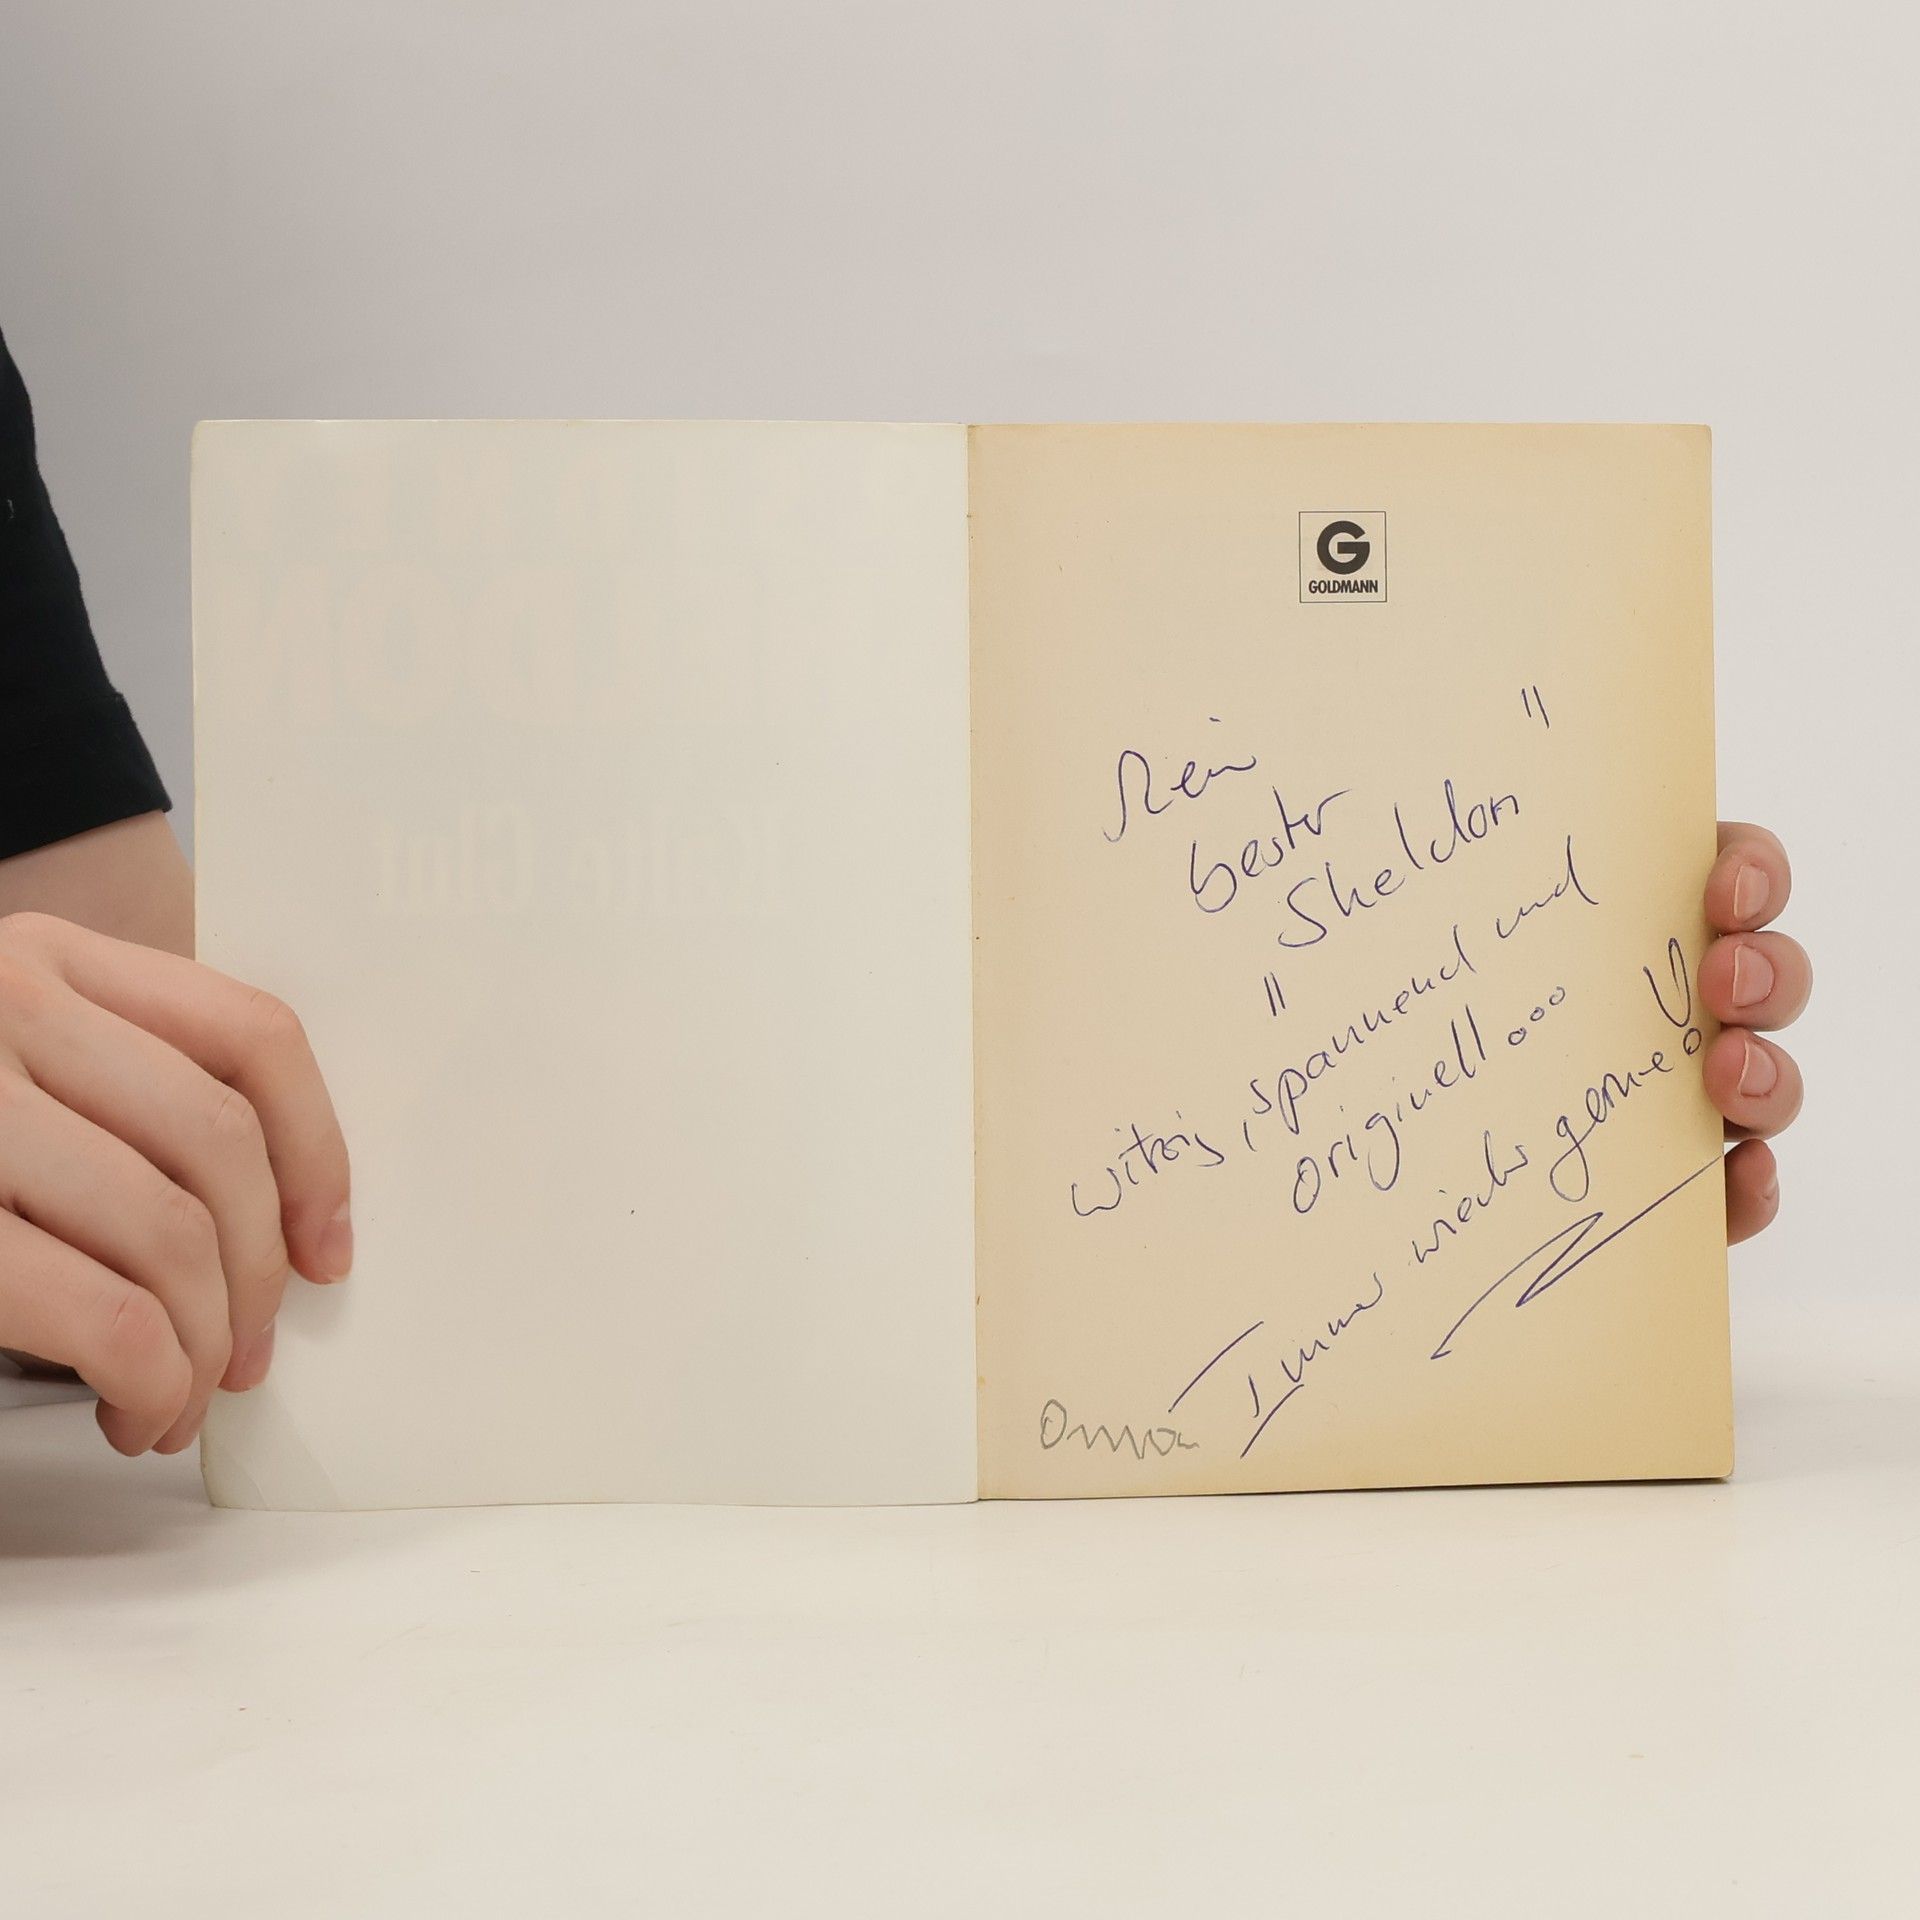 G
GOLDMANN
Mein
bester
Sheldon"
" witzig, spannend und
originell ...
Immer wieder gerne!
Omma